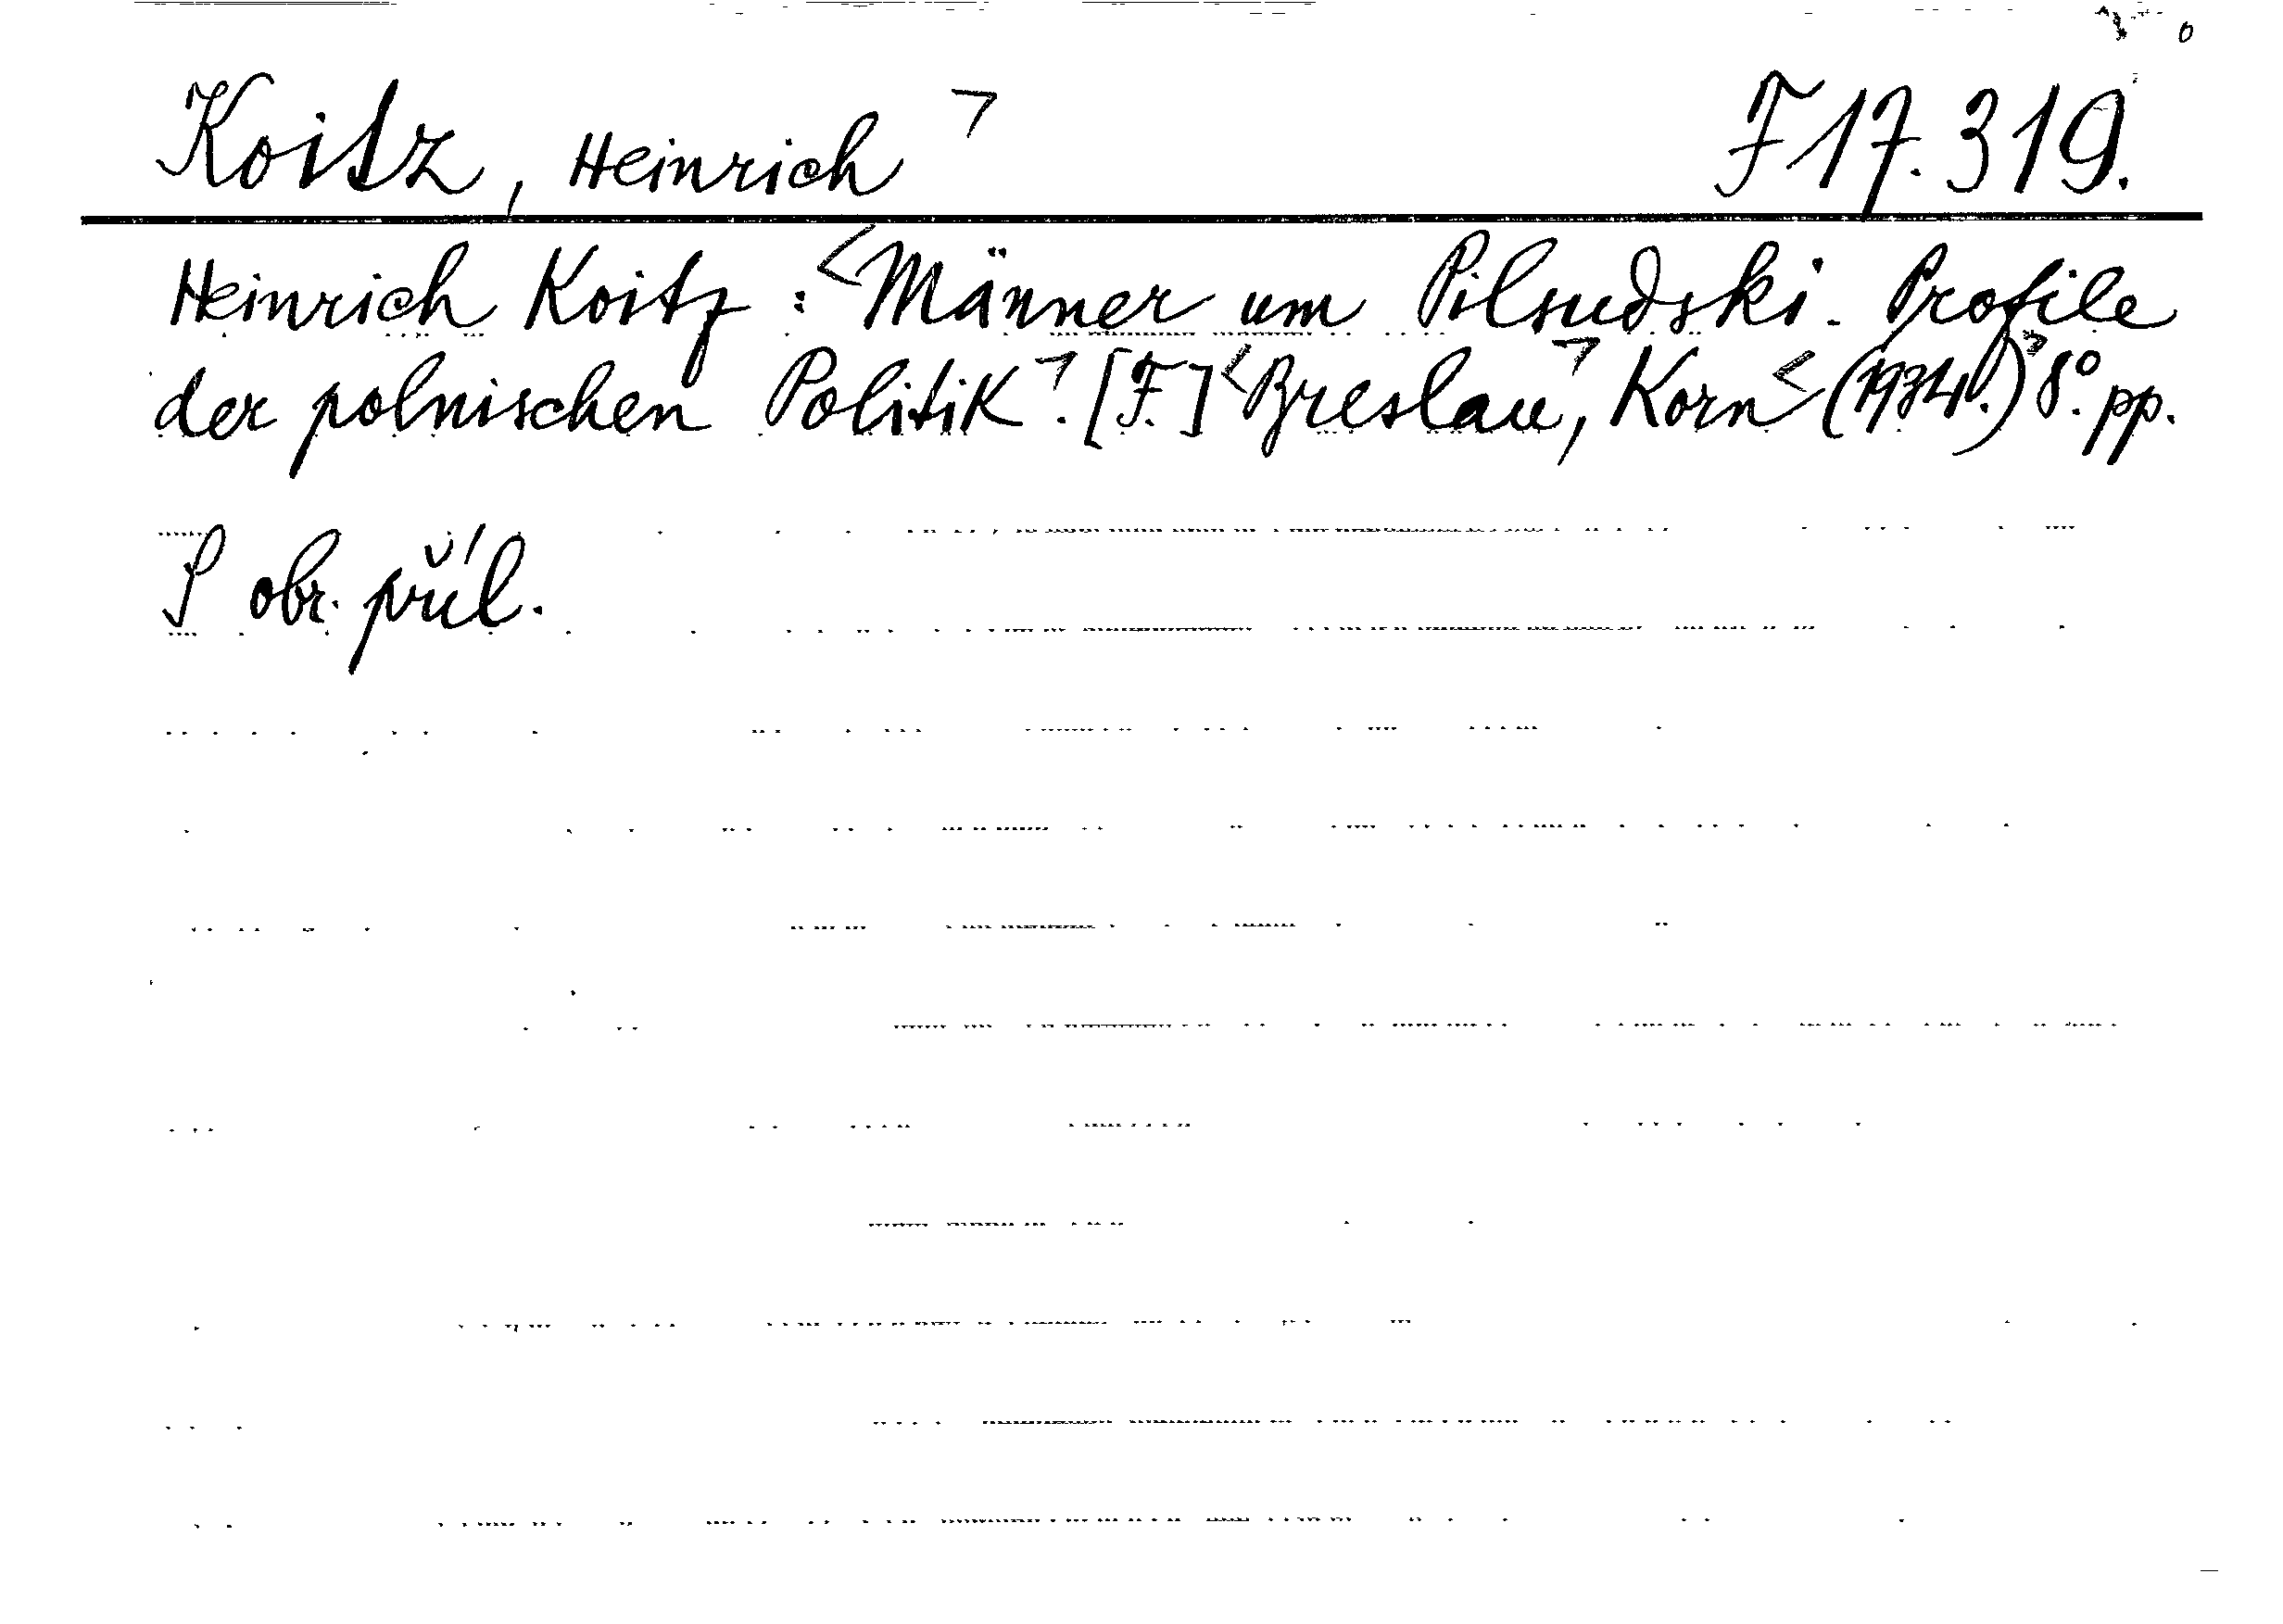 Koitz, Heinrich ㄱ F 17.319.
Heinrich Koitz: <Männer um Pilsudski. Profile
der polnischen Politik⌝. [F.] <Breslau⌝, Korn <(1934.)⌝ 8°. pp.
S obr. příl.